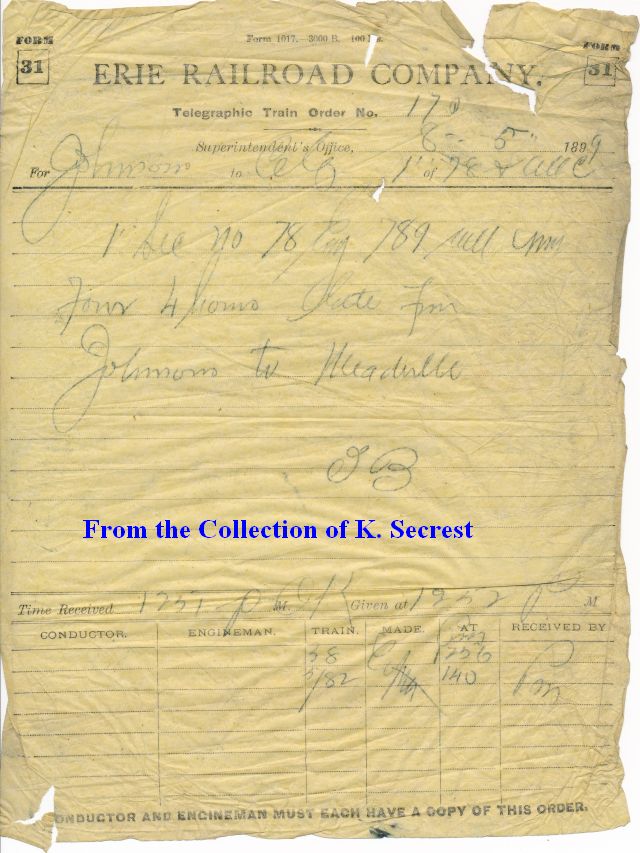 Form 1017.—3000 B. 100
FORM 31
FORM 31
ERIE RAILROAD COMPANY.
Telegraphic Train Order No.
Superintendent's Office, 8 5 1899
For Johnsons to C&E 1st of 78
1st Sec No 78 Eng 789 will run
Four 4 hours late from
Johnsons to Meadville
From the Collection of K. Secrest
Time Received 1251 P M. OK Given at 1252 P M
CONDUCTOR. ENGINEMAN. TRAIN. MADE. AT RECEIVED BY
1256
1/82 140
CONDUCTOR AND ENGINEMAN MUST EACH HAVE A COPY OF THIS ORDER.